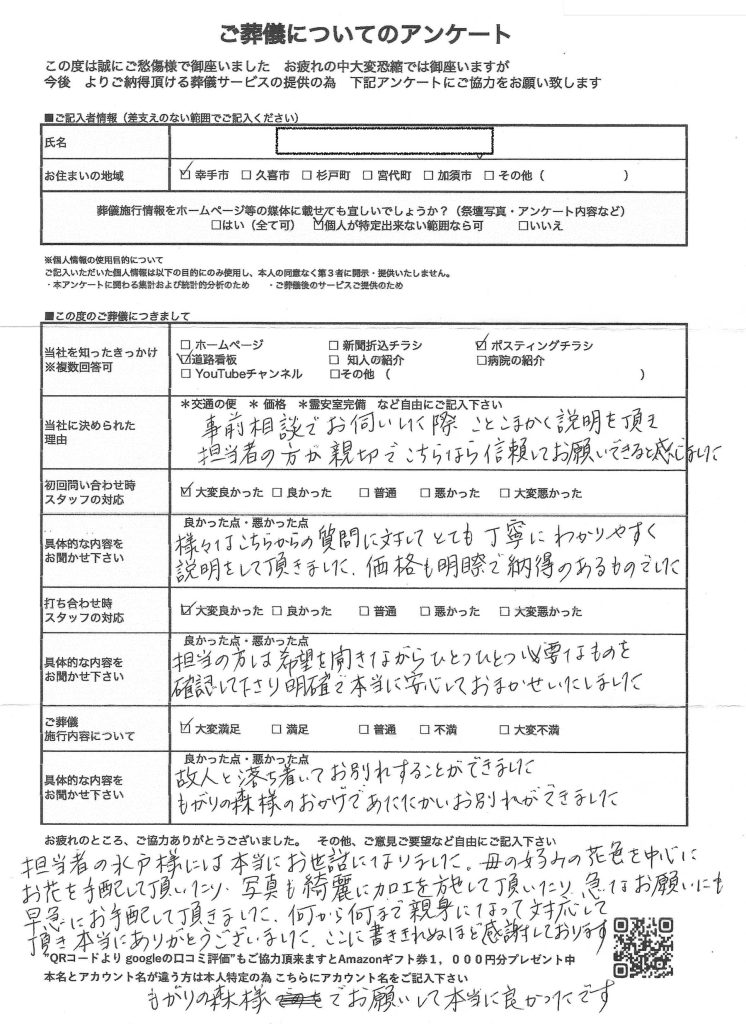 ご葬儀についてのアンケート
この度は誠にご愁傷様で御座いました　お疲れの中大変恐縮では御座いますが
今後　よりご納得頂ける葬儀サービスの提供の為　下記アンケートにご協力をお願い致します
■ご記入者情報（差支えのない範囲でご記入ください）
氏名
お住まいの地域　☑ 幸手市　☐ 久喜市　☐ 杉戸町　☐ 宮代町　☐ 加須市　☐ その他（　　　　　　）
葬儀施行情報をホームページ等の媒体に載せても宜しいでしょうか？（祭壇写真・アンケート内容など）
☐はい（全て可）　☑個人が特定出来ない範囲なら可　☐いいえ
※個人情報の使用目的について
ご記入いただいた個人情報は以下の目的にのみ使用し、本人の同意なく第３者に開示・提供いたしません。
・本アンケートに関わる集計および統計的分析のため　・ご葬儀後のサービスご提供のため
■この度のご葬儀につきまして
当社を知ったきっかけ
※複数回答可
☐ ホームページ　☐ 新聞折込チラシ　☑ ポスティングチラシ
☑道路看板　☐ 知人の紹介　☐病院の紹介
☐ YouTubeチャンネル　☐その他（　　　　　　）
当社に決められた
理由
＊交通の便　＊ 価格　＊霊安室完備　など自由にご記入下さい
事前相談でお伺いした際 ことこまかく説明を頂き
担当者の方が親切でこちらなら信頼してお願いできると感じました
初回問い合わせ時
スタッフの対応
☑ 大変良かった ☐ 良かった　☐ 普通　☐ 悪かった　☐ 大変悪かった
具体的な内容を
お聞かせ下さい
良かった点・悪かった点
様々なこちらからの質問に対してとても丁寧にわかりやすく
説明をして頂きました、価格も明瞭で納得のあるものでした
打ち合わせ時
スタッフの対応
☑ 大変良かった ☐ 良かった　☐ 普通　☐ 悪かった　☐ 大変悪かった
具体的な内容を
お聞かせ下さい
良かった点・悪かった点
担当の方は希望を聞きながらひとつひとつ必要なものを
確認して下さり明確で本当に安心しておまかせいたしました
ご葬儀
施行内容について
☑ 大変満足　☐ 満足　☐ 普通　☐ 不満　☐ 大変不満
具体的な内容を
お聞かせ下さい
良かった点・悪かった点
故人と落ち着いてお別れすることができました
もがりの森様のおかげであたたかいお別れができました
お疲れのところ、ご協力ありがとうございました。　その他、ご意見ご要望など自由にご記入下さい
担当者の水戸様には本当にお世話になりました。母の好みの花色を中心に
お花を手配して頂いたり、写真も綺麗に加工を施して頂いたり 急なお願いにも
早急にお手配して頂きました、何から何まで親身になって対応して
頂き本当にありがとうございました、ここに書ききれぬほど感謝しております
"QRコードより googleの口コミ評価"もご協力頂来ますとAmazonギフト券１，０００円分プレゼント中
本名とアカウント名が違う方は本人特定の為 こちらにアカウント名をご記入下さい
もがりの森様でお願いして本当に良かったです